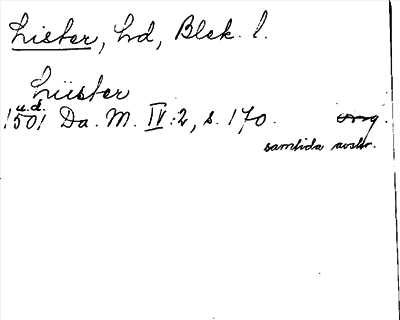 Lister, hd, Blek. l.
Liister
u.d.
1501 Da. M. IV:2, s. 170. orig.
samtida avskr.